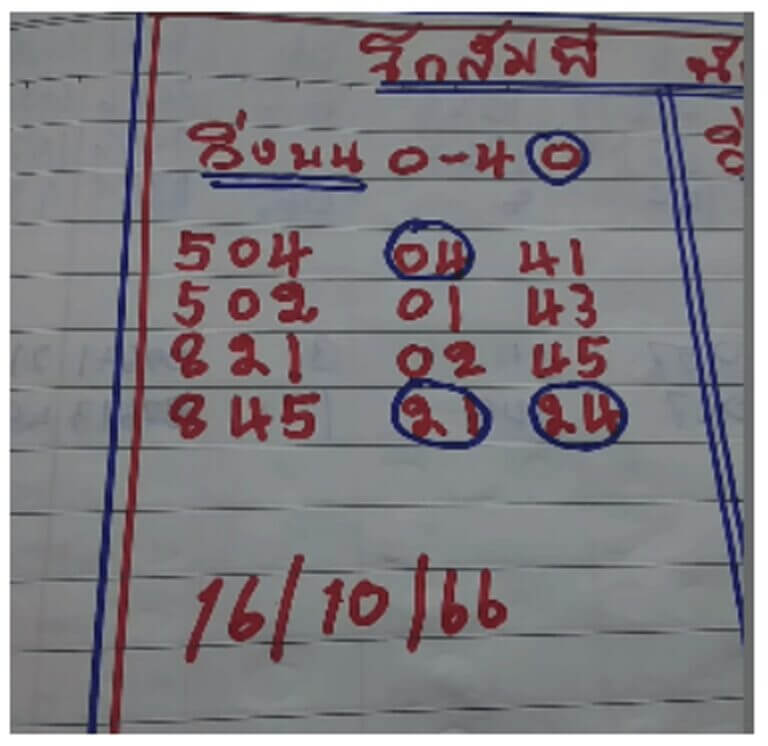 จิกสัมพี
วิ่งบน 0-4 0
504 04 41
502 01 43
821 02 45
845 21 24
16/10/66